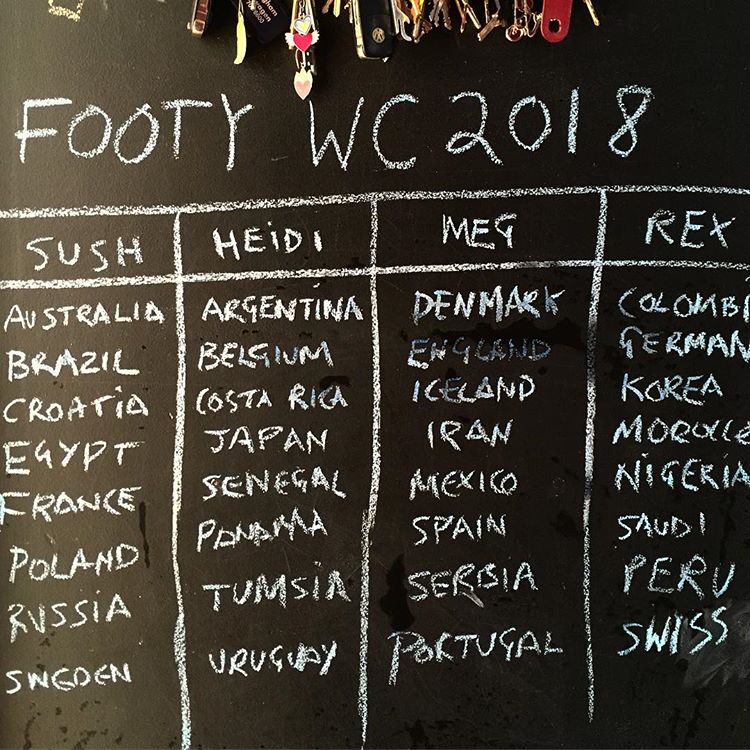 FOOTY WC 2018
SUSH HEIDI MEG REX
AUSTRALIA ARGENTINA DENMARK COLOMBI
BRAZIL BELGIUM ENGLAND GERMAN
CROATIA COSTA RICA ICELAND KOREA
EGYPT JAPAN IRAN MOROCC
FRANCE SENEGAL MEXICO NIGERIA
POLAND PANAMA SPAIN SAUDI
RUSSIA TUMSIA SERBIA PERU
SWEDEN URUGUAY PORTUGAL SWISS